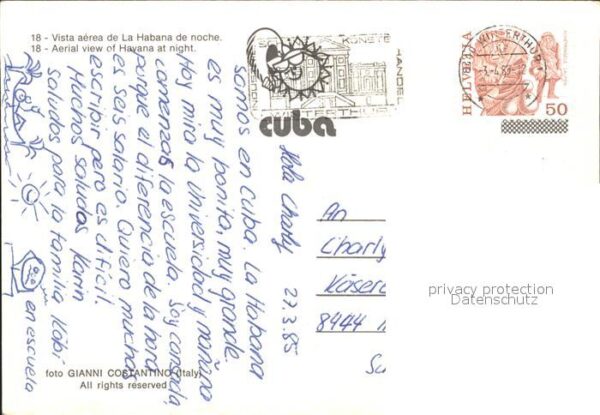 18 - Vista aérea de La Habana de noche.
18 - Aerial view of Havana at night.
cuba
WINTERTHUR
HELVETIA
50
Hola Charly
27.3.85
somos en Cuba. La Habana
es muy bonita, muy grande.
Hoy mira la Universidad y mañana
comenzas la escuela. Soy cansada,
porque el diferencia de la hora
es seis salario. Quiero muchas
escribir pero es difícil.
Muchos saludos Karin
saludos para la familia Käbi
en escuela
An
Charly
Käsere
8444
foto GIANNI COSTANTINO (Italy)
All rights reserved
privacy protection
Datenschutz